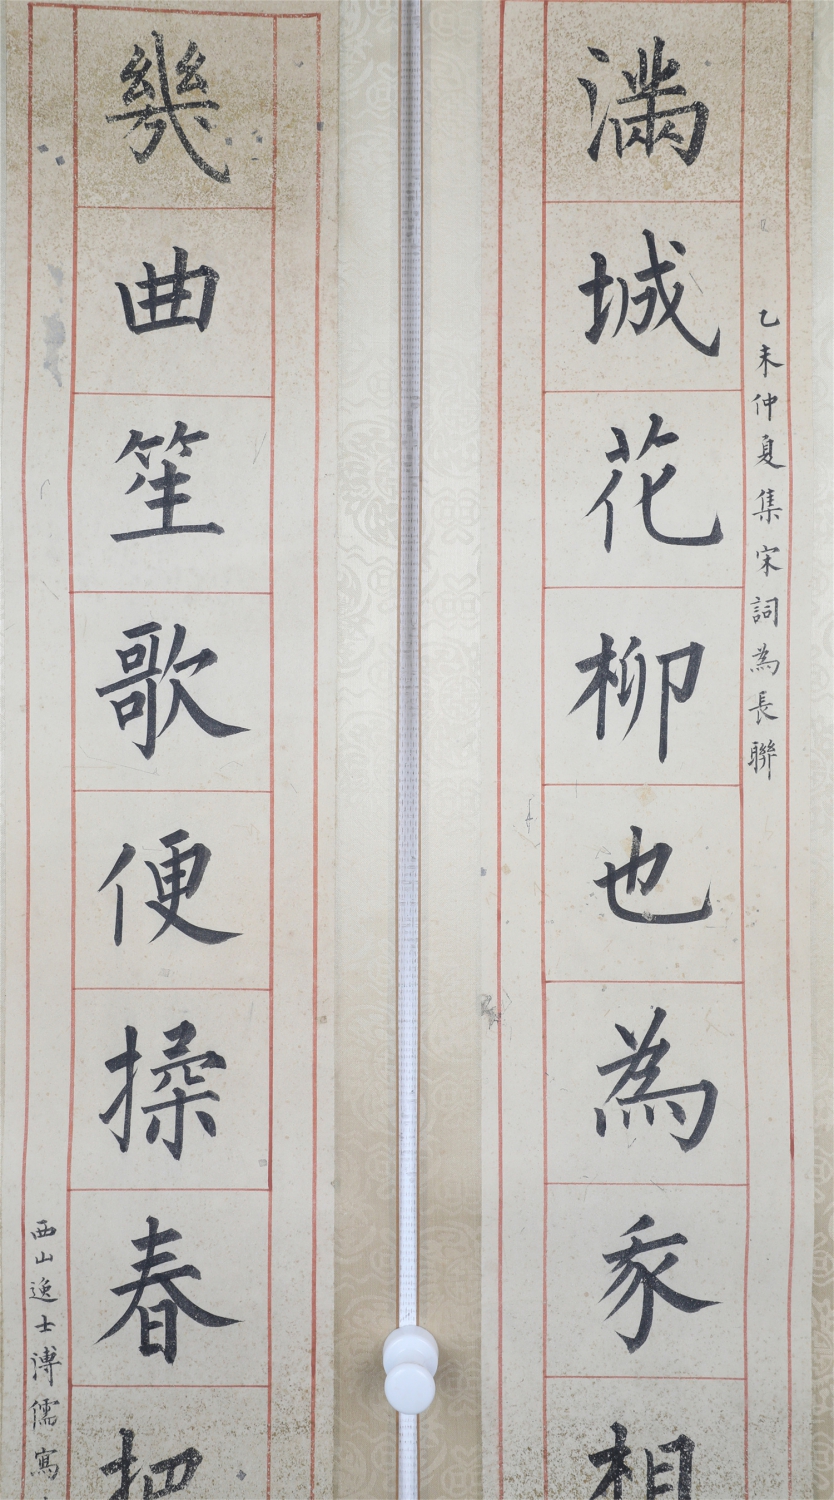 乙未仲夏集宋詞為長聯
滿城花柳也為相
幾曲笙歌便揉春把
西山逸士溥儒寫